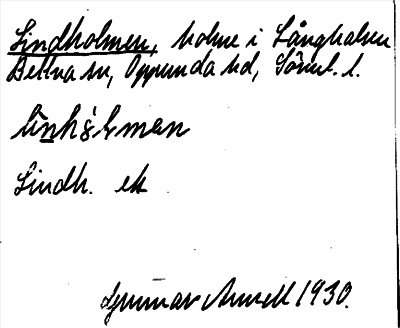 Lindholmen, holme i Långhalsen
Bettna sn, Oppunda hd, Söml. l.
Lindh. ek
Gunnar Arnell 1930.